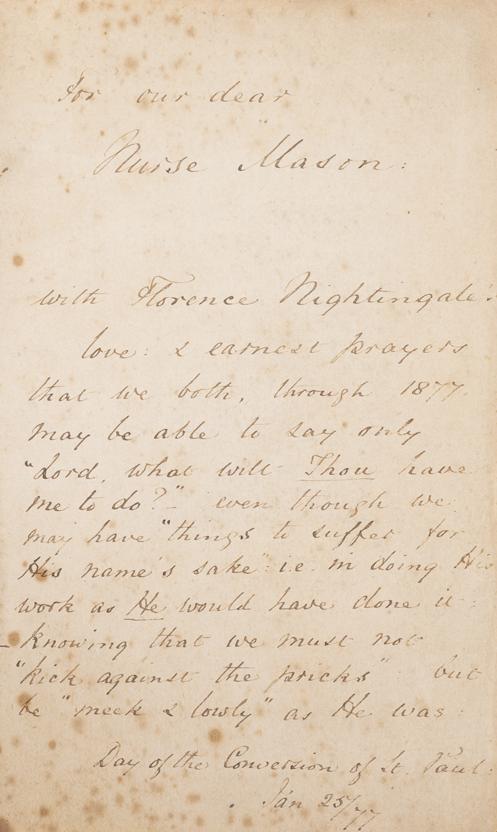 For our dear
Nurse Mason:
with Florence Nightingale's
love: & earnest prayers
that we both, through 1877
may be able to say only
"Lord, what wilt Thou have
me to do?" – even though we
may have "things to suffer for
His name's sake": i.e. in doing His
work as He would have done it:
– knowing that we must not
"kick against the pricks" but
be "meek & lowly" as He was
Day of the Conversion of St. Paul:
Jan 25/77